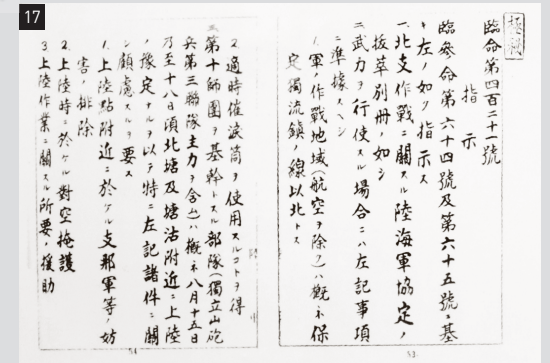 17
極秘
臨命第四百二十一號
指示
臨參命第六十四號及第六十五號ニ基
キ左ノ如ク指示ス
一、北支作戰ニ關スル陸海軍協定ノ
拔萃別冊ノ如シ
二、武力ヲ行使スル場合ニハ左記事項
ニ準據スヘシ
1. 軍ノ作戰地域(航空ヲ除ク)ハ概ネ保
定獨流鎮ノ線以北トス
53
2. 適時催淚筒ヲ使用スルコトヲ得
三、第十師團ヲ基幹トスル部隊(獨立山砲
兵第三聯隊主力ヲ含ム)ハ概ネ八月十五日
乃至十八日頃北塘及塘沽附近ニ上陸
ノ豫定ナルヲ以テ特ニ左記諸件ニ關
シ顧慮スルヲ要ス
1. 上陸點附近ニ於ケル支那軍等ノ妨
害ノ排除
2. 上陸時ニ於ケル對空掩護
3. 上陸作業ニ關スル所要ノ援助
54